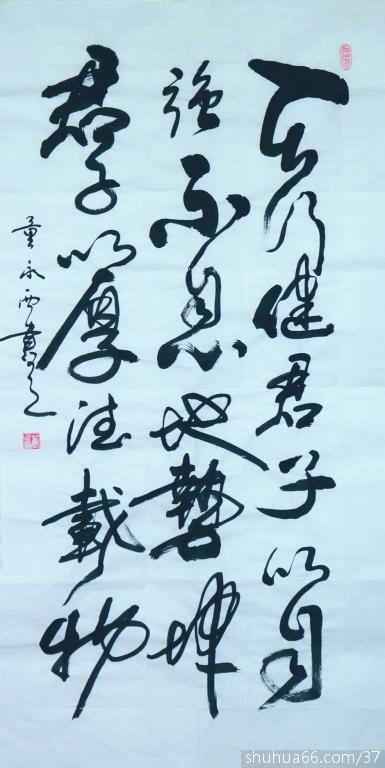 天行健君子以自
強不息地勢坤
君子以厚德載物
永西書
shuhua66.com/37